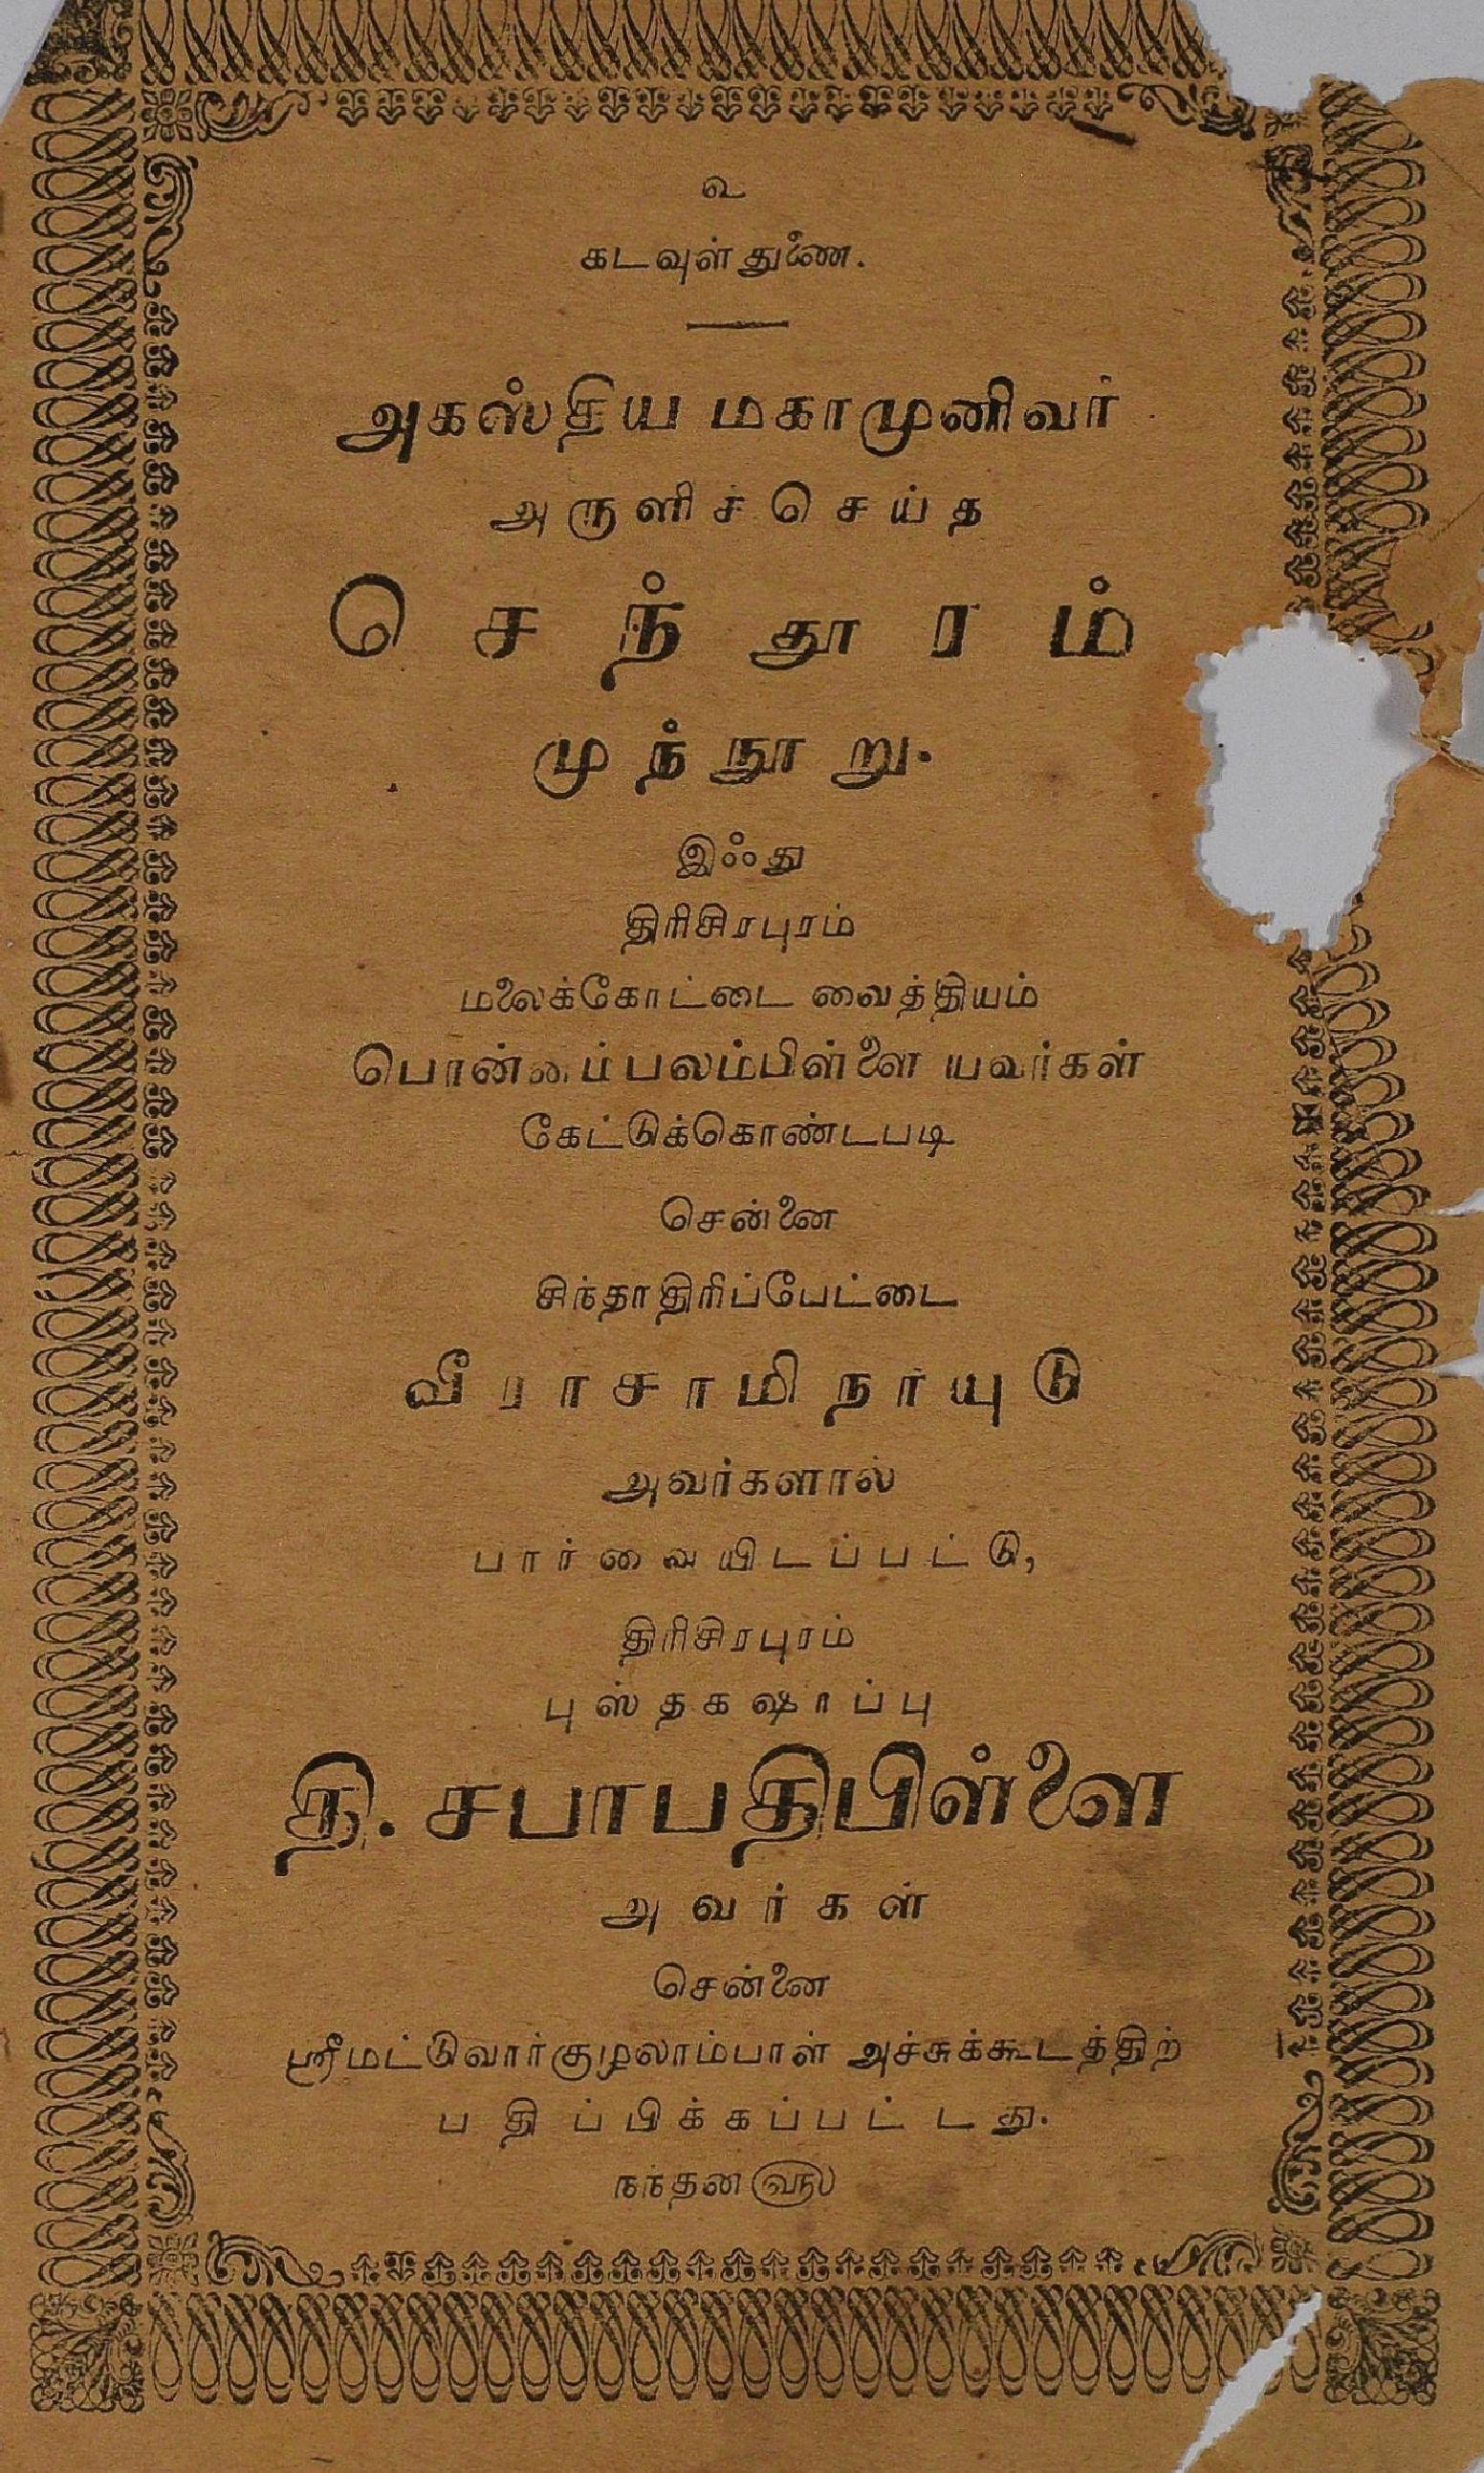 உ
கடவுள் துணை.
அகஸ்திய மகாமுனிவர்
அருளிச்செய்த
செந்தூரம்
முந்நூறு.
இஃது
திரிசிரபுரம்
மலைக்கோட்டை வைத்தியம்
பொன்னம்பலம்பிள்ளை யவர்கள்
கேட்டுக்கொண்டபடி
சென்னை
சிந்தாதிரிப்பேட்டை
வீராசாமிநாயுடு
அவர்களால்
பார்வையிடப்பட்டு,
திரிசிரபுரம்
புஸ்தகஷாப்பு
தி. சபாபதிபிள்ளை
அவர்கள்
சென்னை
ஸ்ரீமட்டுவார்குழலாம்பாள் அச்சுக்கூடத்திற்
பதிப்பிக்கப்பட்டது.
நந்தன௵